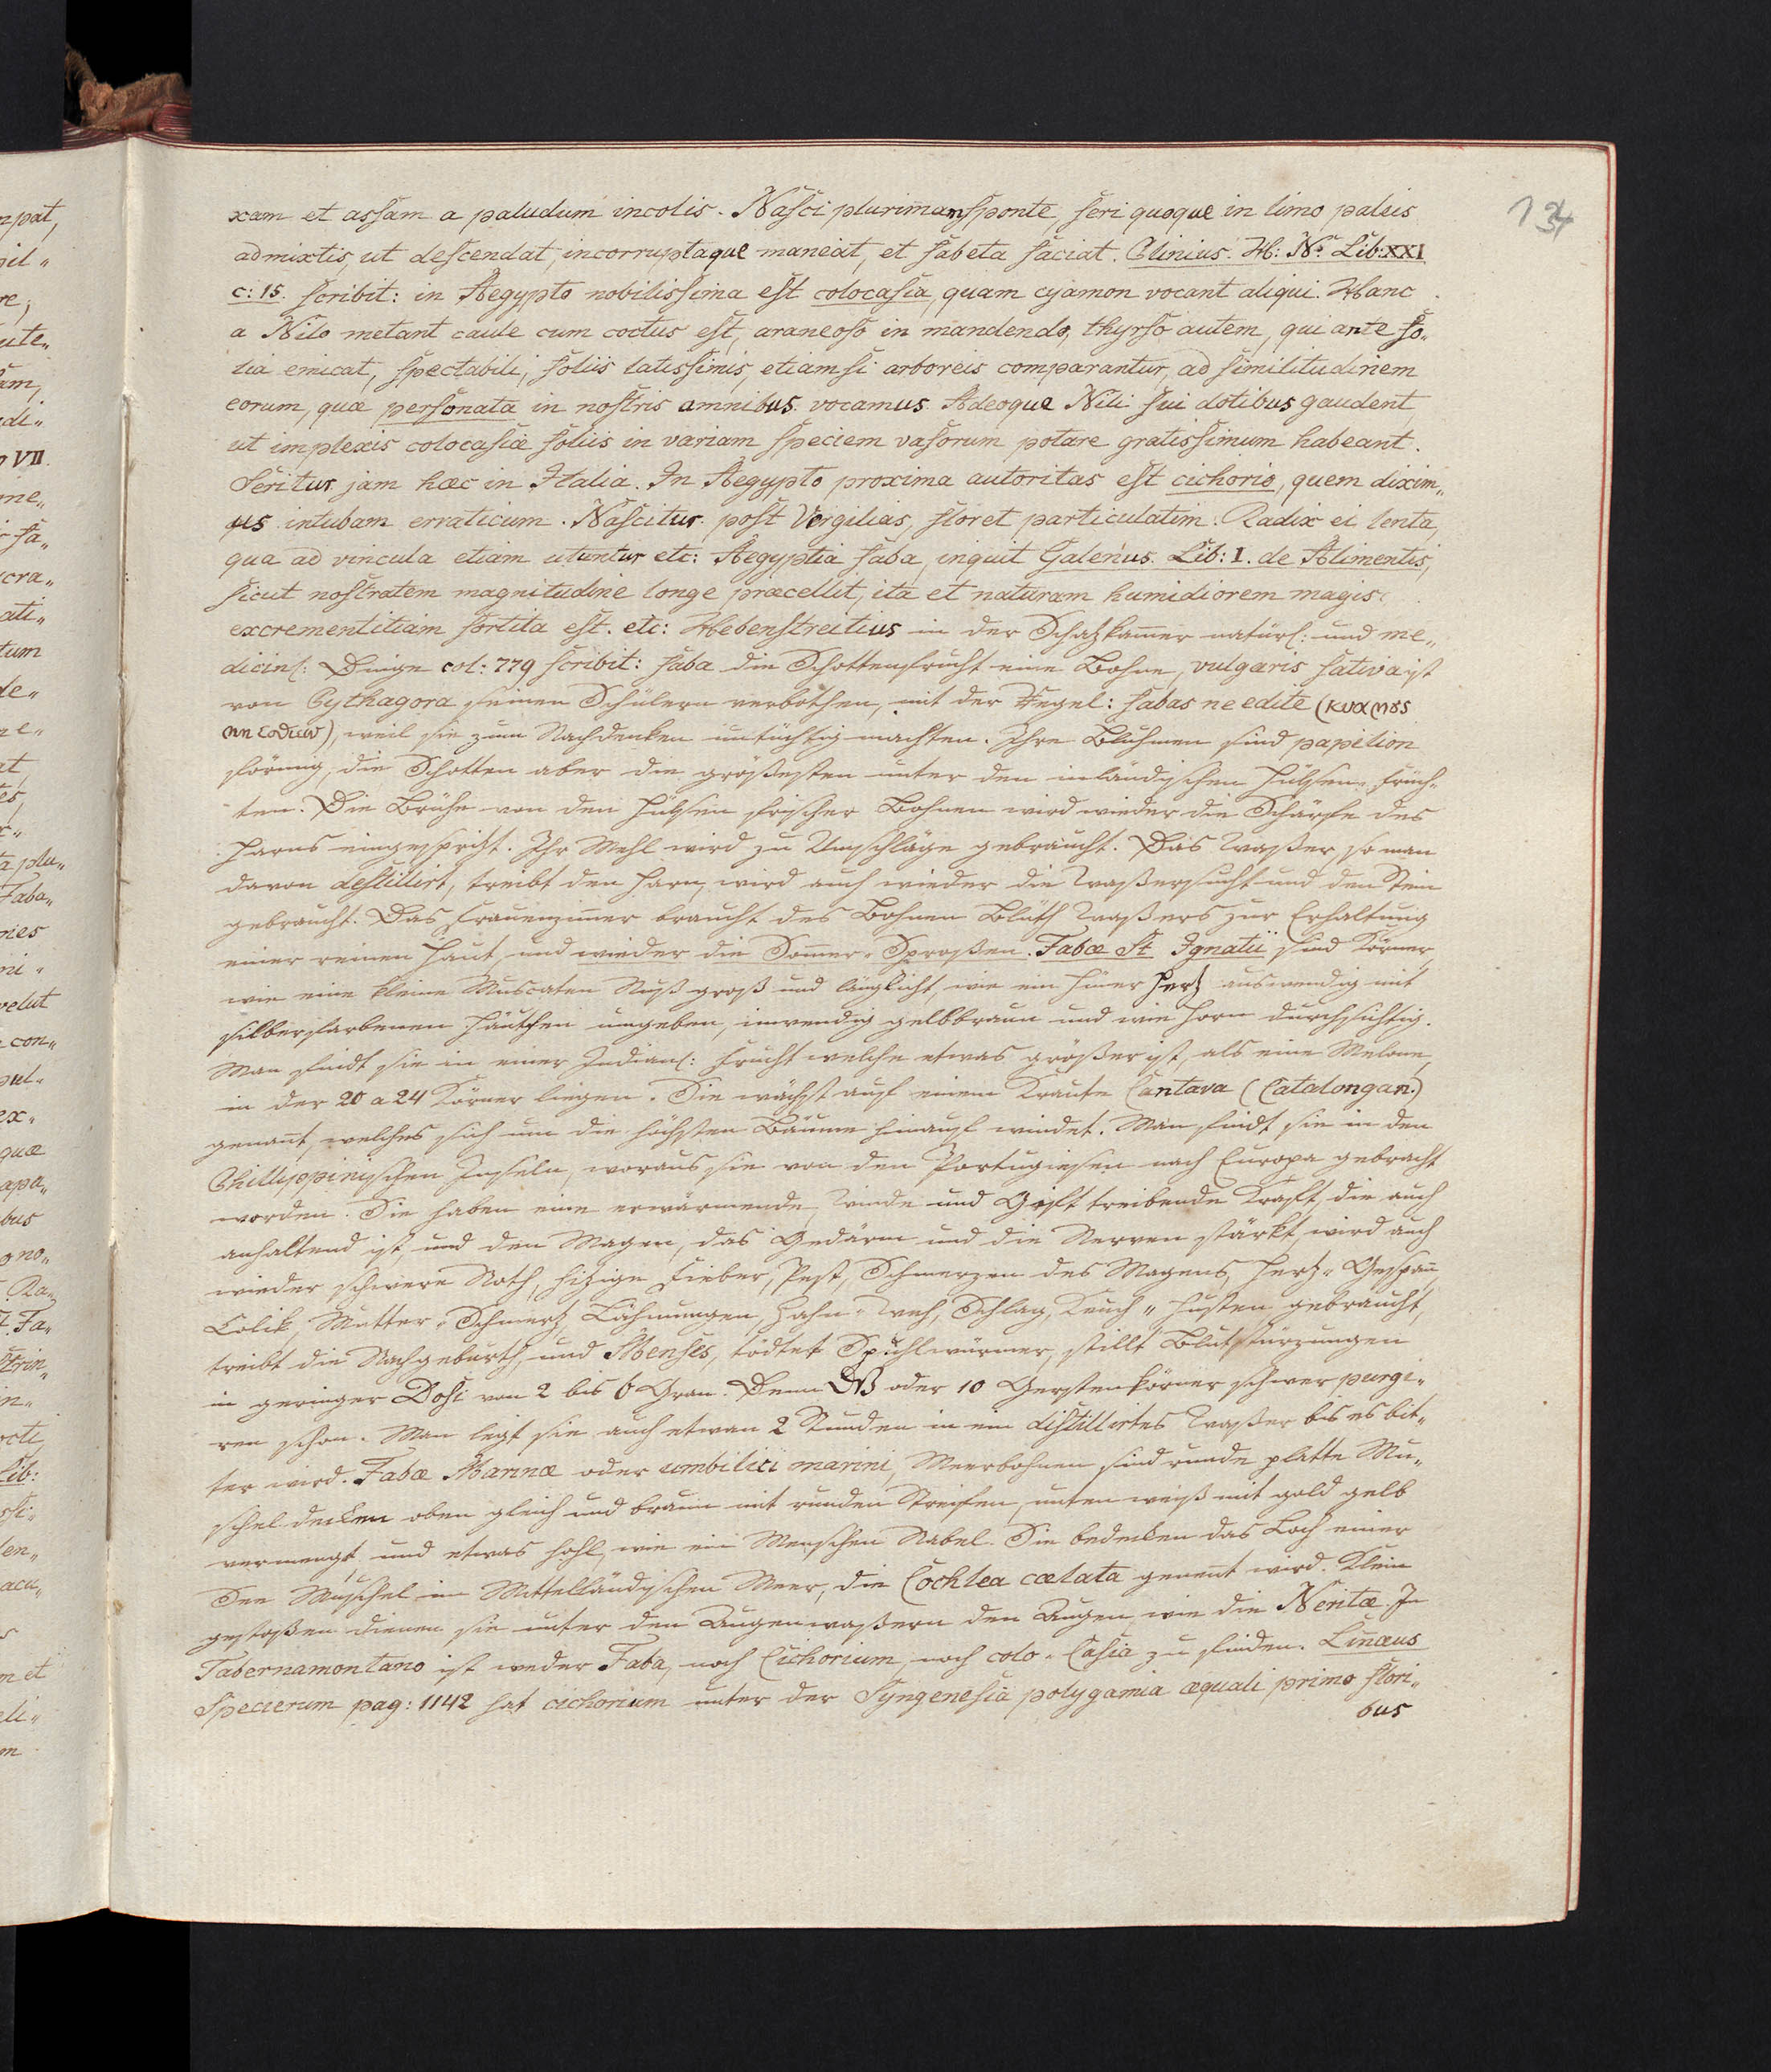 134
xam et assam a paludum incolis. Nasci plurimam sponte, seri quoque in limo paleis
admixtis, ut descendat, incorruptaque maneat, et fabeta faciat. Plinius. H: N. Lib: XXI
c: 15. scribit: in Aegypto nobilissima est colocasia, quam cyamon vocant aliqui. Hanc
a Nilo metant caule cum coctus est, araneoso in mandendo, thyrso autem, qui ante fo„
lia emicat, spectabili, foliis latissimis, etiamsi arboreis comparantur, ad similitudinem
eorum, quæ personata in nostris amnibus vocamus. Adeoque Nili sui dotibus gaudent
ut implexis colocasiæ foliis in variam speciem vasorum potare gratissimum habeant.
Seritur jam hæc in Italia. In Aegypto proxima autoritas est cichorio, quem dixim„
us intubam erraticum. Nascitur post Vergilias, floret particulatim. Radix ei lenta,
qua ad vincula etiam utuntur etc: Aegyptia faba, inquit Galenus. Lib: I. de Alimentis,
sicut nostratem magnitudine longe præcellit, ita et naturam humidiorem magis
excrementitiam sortita est. etc: Hebenstreitius in der Schatzkamer natürl: und me„
dicinl: Dinge col: 779 scribit: faba die Schottenfrucht eine Bohne, vulgaris sativa ist
von Pythagora seinen Schülern verbothen, mit der Regel: fabas ne edite (κυαμȣς
μη εσθιων), weil sie zum Nachdenken untüchtig machten. Ihre Bluhmen sind papilion
förmig, die Schotten aber die größesten unter den inländischen Hülsen„früch„
ten. Die Brühe von den Hülsen frischer Bohnen wird wieder die Schärfe des
Harns eingesprizt. Ihr Mehl wird zu Umschläge gebraucht. Das Waßer so man
davon destillirt, treibt den Harn, wird auch wieder die Waßersucht und den Stein
gebraucht. Das Frauenzimer braucht des Bohnen Blüth Waßers zur Erhaltung
einer reinen Haut, und wieder die Somer„Sproßen. Fabæ St Ignatii sind Körner
wie eine kleine Muscaten Nuß groß und länglicht, wie ein Hüner Hertz auswendig mit
silberfarbenen Häutchen umgeben, inwendig gelbbraun und wie Horn durchsichtig.
Man findt sie in einer Indianl: Frucht welche etwas größer ist, als eine Melone,
in der 20 a 24 Körner liegen. Sie wächst auf einem Kraute Cantava (Catalongan.)
genant, welches sich um die höchsten Bäume hinauf windet. Man findt sie in den
Phillippinischen Inseln, woraus sie von den Portugiesen nach Europa gebracht
worden. Sie haben eine erwärmende, Winde und Gift treibende Kraft, die auch
anhaltend ist, und den Magen, das Gedärm und die Nerven stärkt, wird auch
wieder schwere Noth, hizige Fieber, Pest, Schmerzen des Magens, Hertz„Gespan,
Colik, Mutter„Schmertz, Lähmungen, Zahn„Weh, Schlag, Keuch„Husten gebraucht,
treibt die Nachgeburth, und Menses, tödtet Spuhlwürmer, stillt Blutstürzungen
in geringer Dosi von 2 bis 6 Gran. Denn oder 10 Gerstenkörner schwer purgi„
ren schon. Man legt sie auch etwan 2 Stunden in ein distillirtes Waßer bis es bit„
ter wird. Fabæ Marinæ oder umbilici marini, Meerbohnen sind runde platte Mu„
schel decken oben gleich und braun mit runden Streifen, unten weiß mit gold gelb
vermengt, und etwas hohl, wie ein Menschen Nabel. Sie bedecken das Loch einer
See Muschel im Mittelländischen Meer, die Cochlea cœlata genent wird. Klein
gestoßen dienen sie unter den Augenwaßern den Augen wie die Neritæ. In
Tabernamontano ist weder Faba, noch Cichorium, noch colo„Casia zu finden. Linæus
Specierum pag: 1142 hat cichorium unter der Syngenesia polygamia æquali primo flori„
bus